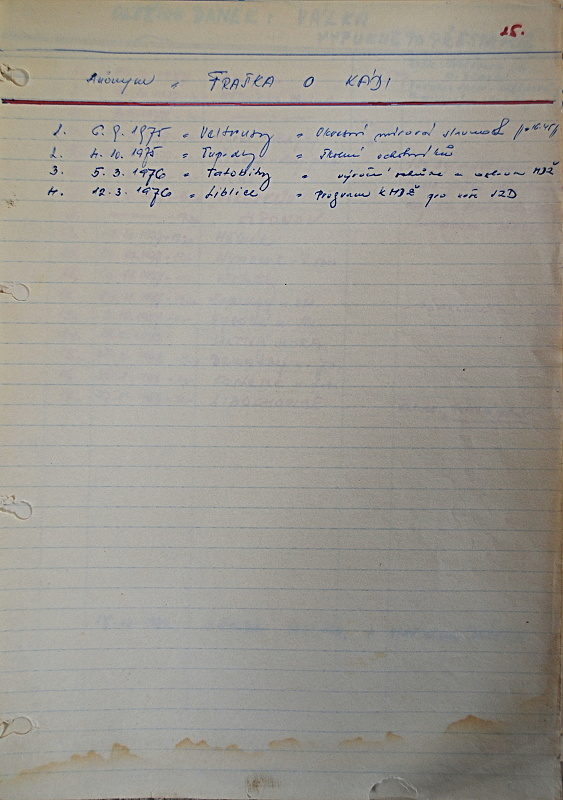 15.
Anonym - FRAŠKA O KÁDI
1. 6.9.1975 = Veltrusy = Okresní mírová slavnost
2. 4.10.1975 = Tupadly = Školení ochotníků
3. 5.3.1976 = = výročí a oslava MDŽ
4. 12.3.1976 = Liblice = Program k MDŽ pro naše JZD